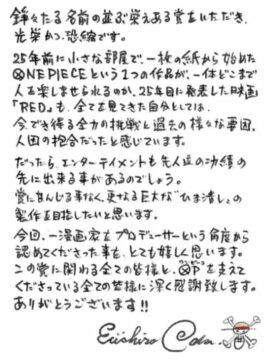 錚々たる名前の並ぶ栄えある賞をいただき、
光栄かつ恐縮です。
25年前に小さな部屋で、一枚の紙から始めた
ONE PIECEという1つの作品が、一体どこまで
人を楽しませられるのか、25年目に発表した映画
「RED」も、全てを見てきた自分としては、
今でき得る全力の挑戦と過去の様々な要因、
人困の抱合だったと感じています。
だったら、エンターテイメントも先人達の功績の
先に出来る事があるのでしょう。
賞に甘んじる事なく、更なる巨大な"ひま潰し"の
製作を目指したいと思います。
今回、一漫画家をプロデューサーという角度から
認めてくださった事も、とても嬉しく思います。
この賞に関わる全ての皆様と、OPを支えて
くださっている全ての皆様に深く感謝致します。
ありがとうございます!!
Eiichiro Oda.